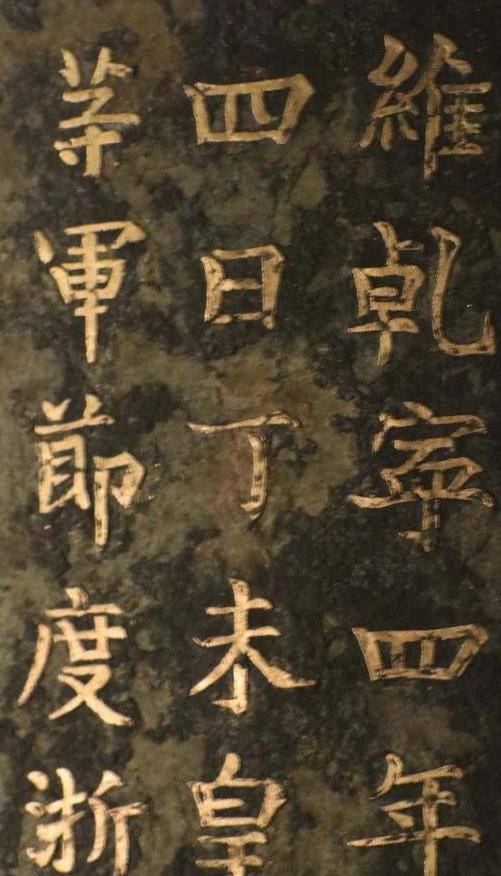 維乾寧四年
四日丁未皇
等軍節度浙